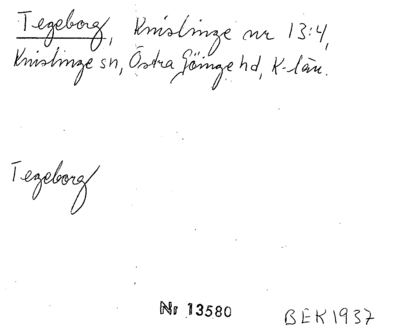 Tegeborg, Knislinge nr 13:4,
Knislinge sn, Östra Göinge hd, K-län.
Tegeborg
Nr 13580
BEK 1937